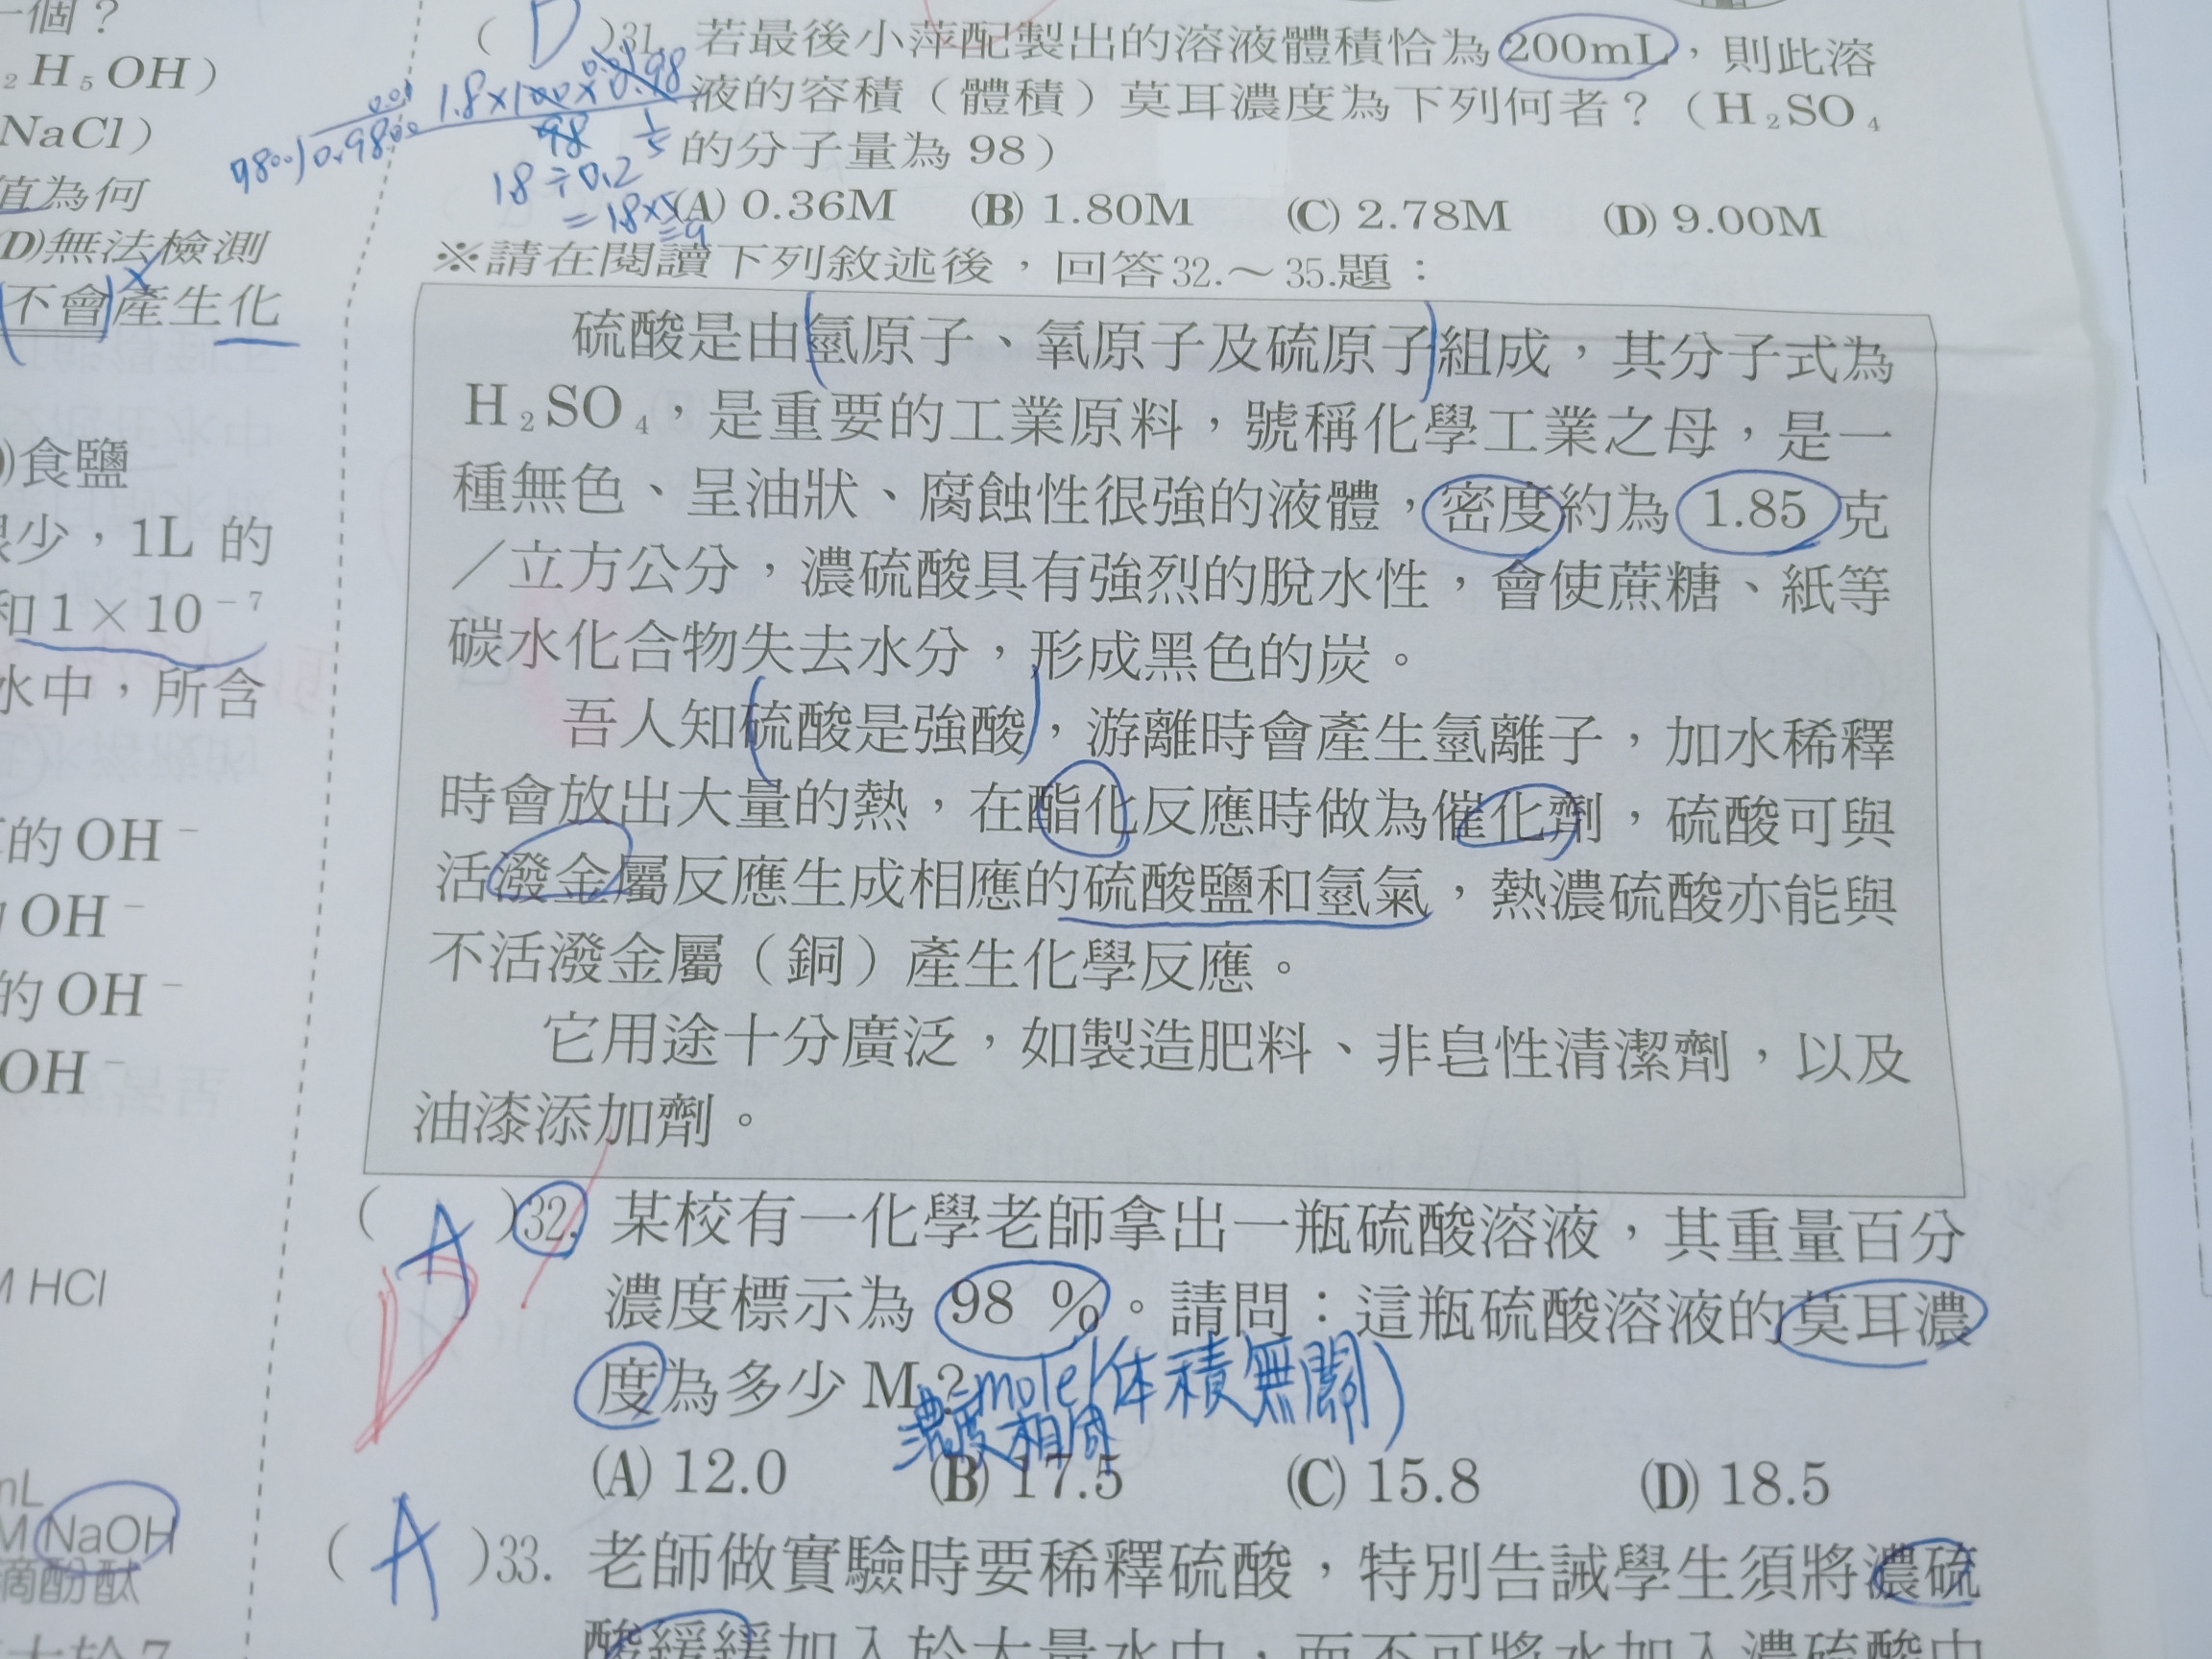 一個？
₂H₅OH）
NaCl）
值為何
D)無法檢測
不會產生化
)食鹽
很少，1L 的
和 1×10⁻⁷
水中，所含
的 OH⁻
OH⁻
的 OH⁻
OH⁻
M HCl
mL
M NaOH
滴酚酞
大於7
( D )31. 若最後小萍配製出的溶液體積恰為 200mL，則此溶
液的容積（體積）莫耳濃度為下列何者？（H₂SO₄
的分子量為 98）
(A) 0.36M (B) 1.80M (C) 2.78M (D) 9.00M
1.8×100×0.98
98
1.8÷0.2
=1.8×5
=9
※請在閱讀下列敘述後，回答32.～35.題：
硫酸是由氫原子、氧原子及硫原子組成，其分子式為
H₂SO₄，是重要的工業原料，號稱化學工業之母，是一
種無色、呈油狀、腐蝕性很強的液體，密度約為 1.85 克
／立方公分，濃硫酸具有強烈的脫水性，會使蔗糖、紙等
碳水化合物失去水分，形成黑色的炭。
吾人知硫酸是強酸，游離時會產生氫離子，加水稀釋
時會放出大量的熱，在酯化反應時做為催化劑，硫酸可與
活潑金屬反應生成相應的硫酸鹽和氫氣，熱濃硫酸亦能與
不活潑金屬（銅）產生化學反應。
它用途十分廣泛，如製造肥料、非皂性清潔劑，以及
油漆添加劑。
( A )32. 某校有一化學老師拿出一瓶硫酸溶液，其重量百分
D
濃度標示為 98 %。請問：這瓶硫酸溶液的莫耳濃
度為多少 M？
mole(体積無關)
濃度相同
(A) 12.0 (B) 17.5 (C) 15.8 (D) 18.5
( A )33. 老師做實驗時要稀釋硫酸，特別告誡學生須將濃硫
酸緩緩加入於大量水中，而不可將水加入濃硫酸中